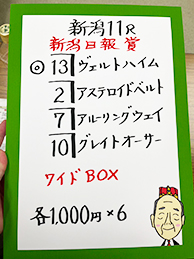 新潟11R
新潟日報賞
◎ 13 ヴェルトハイム
2 アステロイドベルト
7 アルーリングウェイ
10 グレイトオーサー
ワイドBOX
各1,000円×6